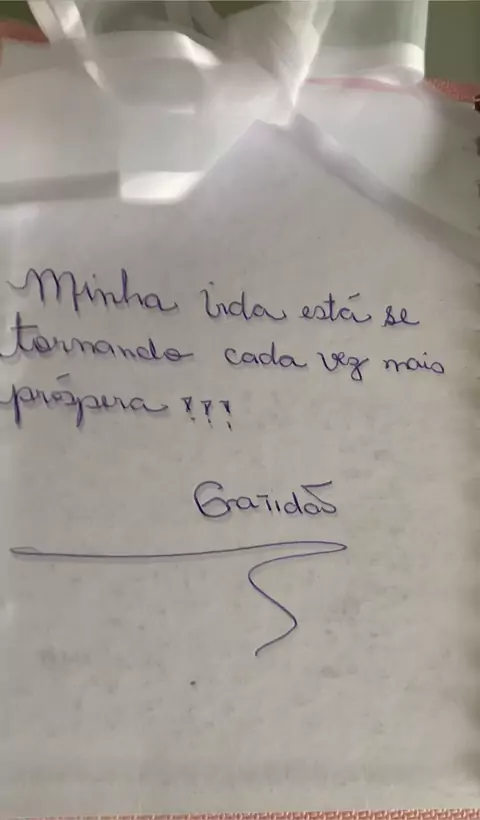 Minha vida está se
tornando cada vez mais
próspera !!!
Gratidão